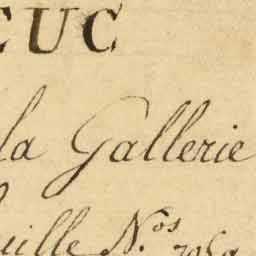 EUC
la Gallerie
uille N.os